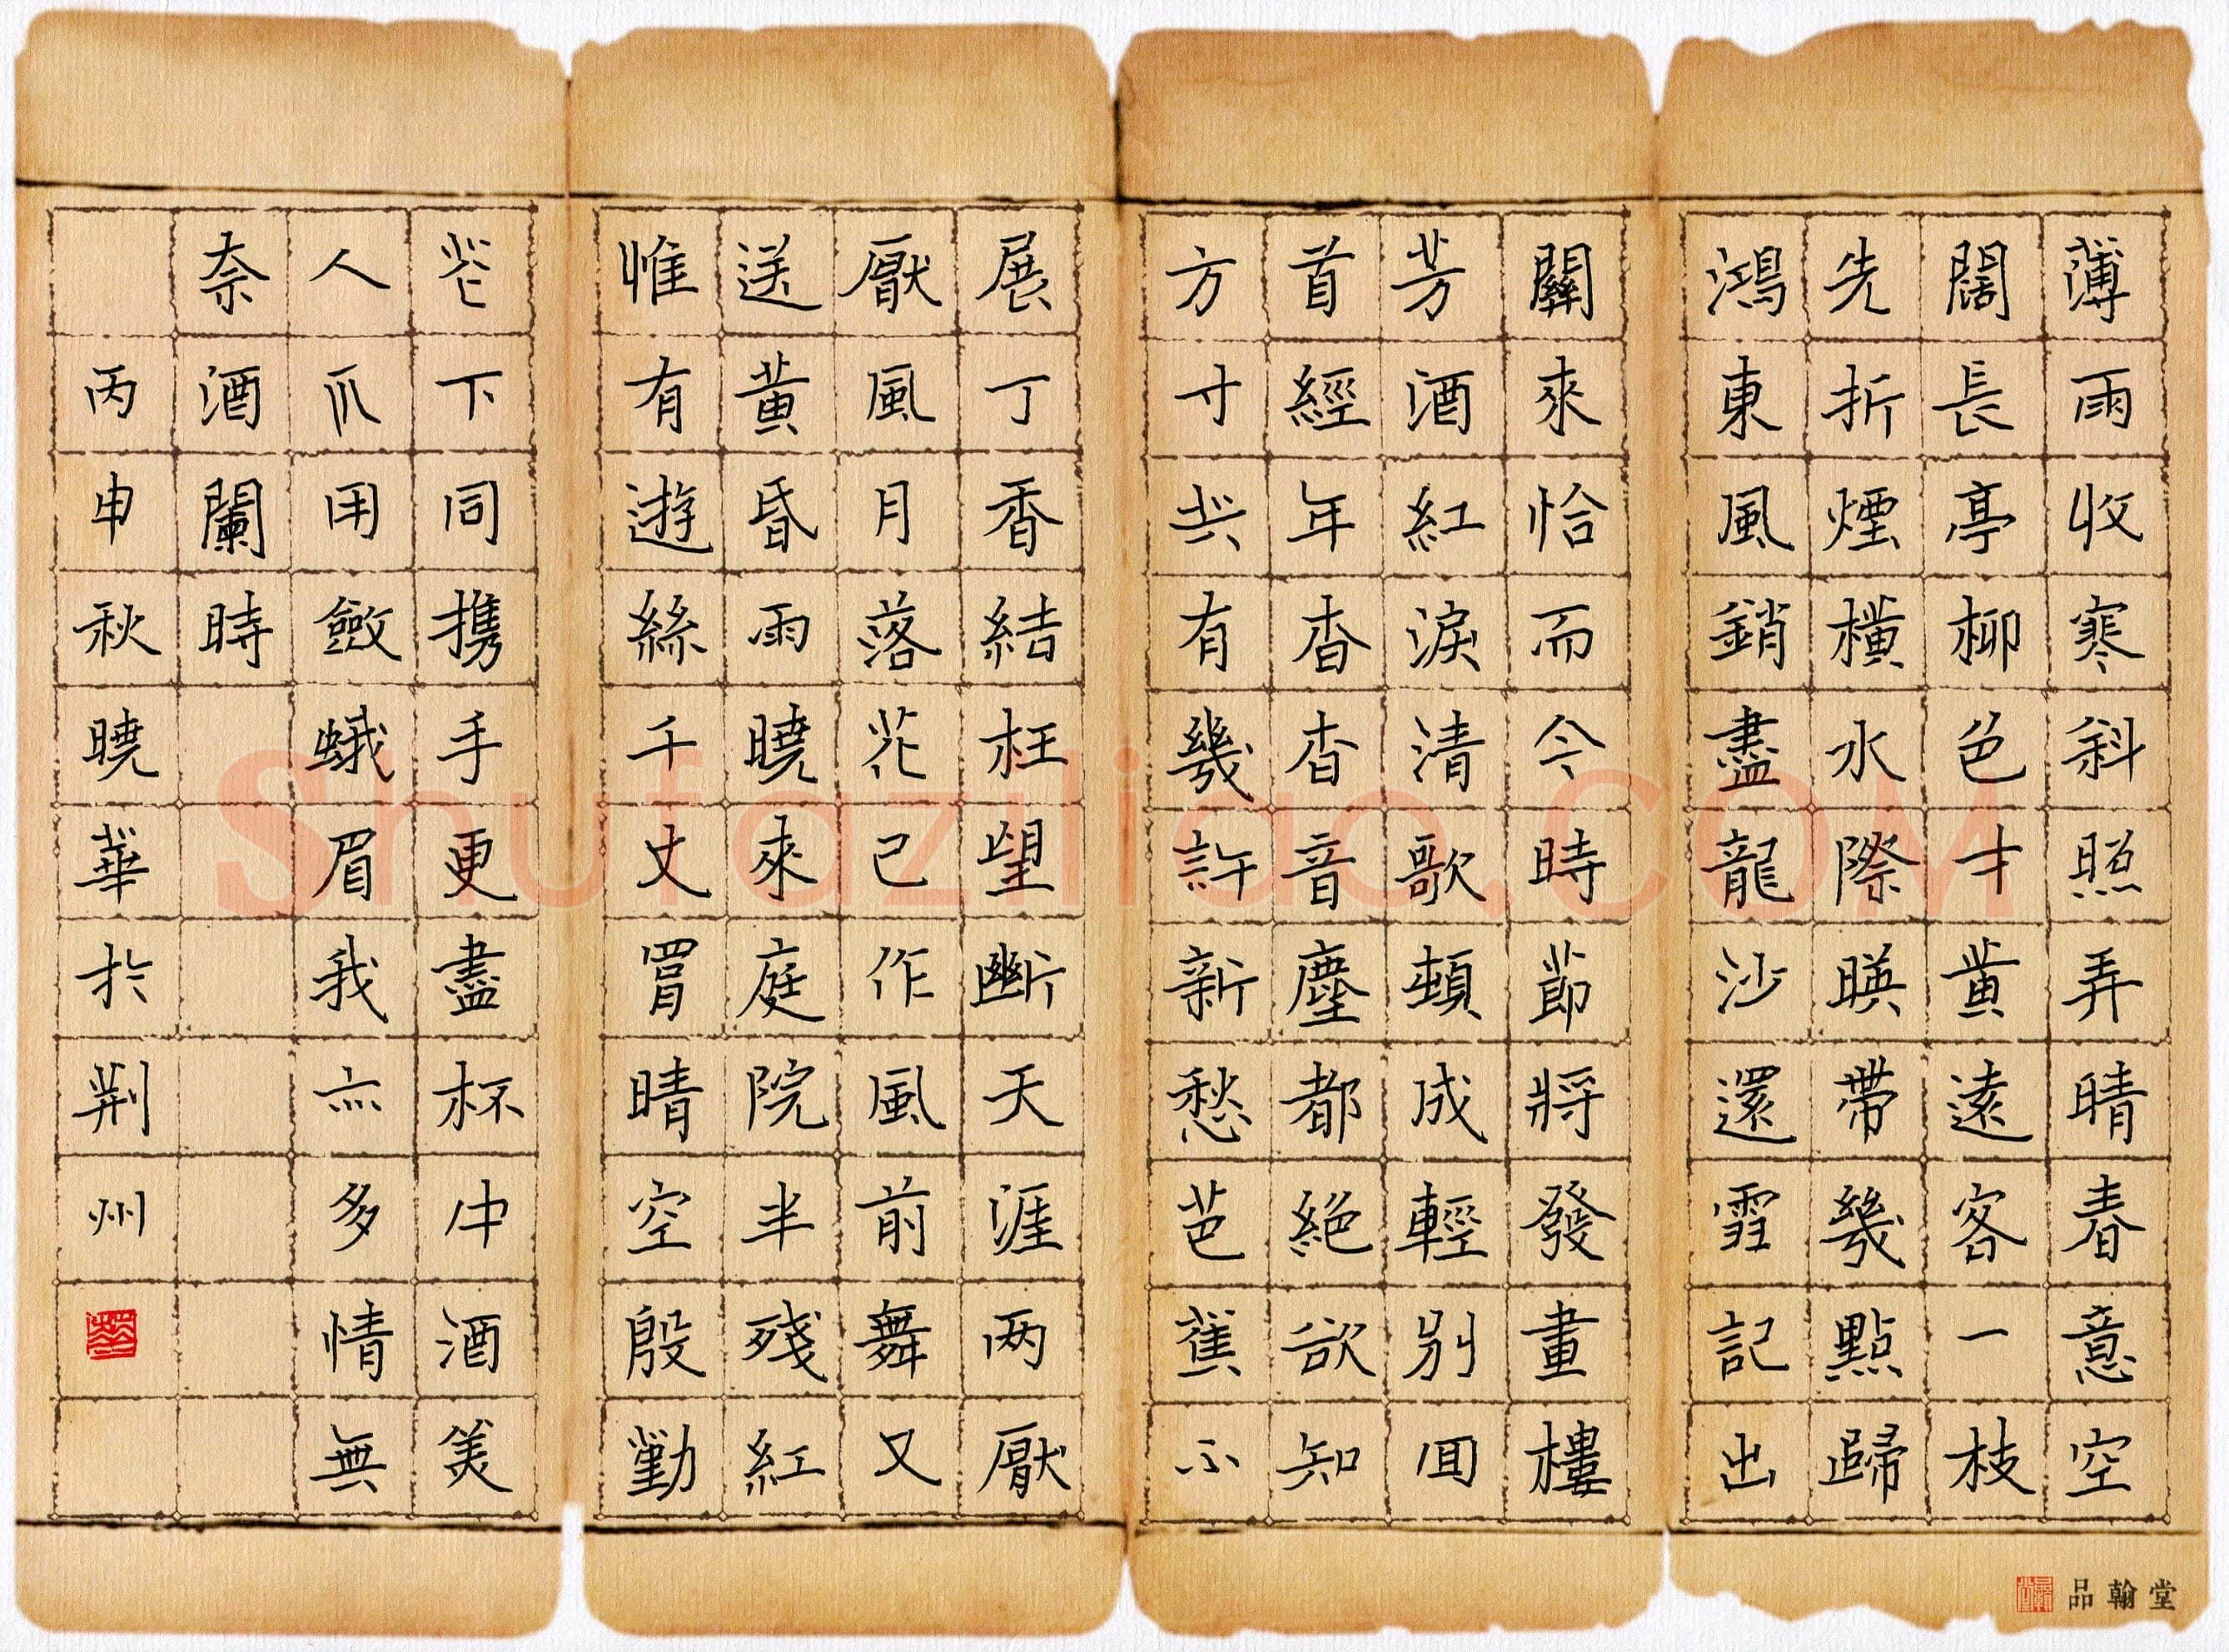 薄雨收寒斜照弄晴春意空
闊長亭柳色才黃遠客一枝
先折煙橫水際暎帶幾點歸
鴻東風銷盡龍沙還雪記出
關來恰而今時節將發畫樓
芳酒紅淚清歌頓成輕別回
首經年杳杳音塵都絕欲知
方寸共有幾許新愁芭蕉不
展丁香結枉望斷天涯两厭
厭風月落花已作風前舞又
送黃昏雨曉來庭院半殘紅
惟有遊絲千丈罥晴空殷勤
花下同携手更盡杯中酒美
人不用斂蛾眉我亦多情無
奈酒闌時
丙申秋曉華於荊州
品翰堂
Shufaziliao.com